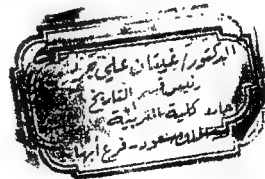 الدكتور / غيثان علي جريس
رئيس قسم التاريخ
كلية التربية
الملك سعود - فرع أبها